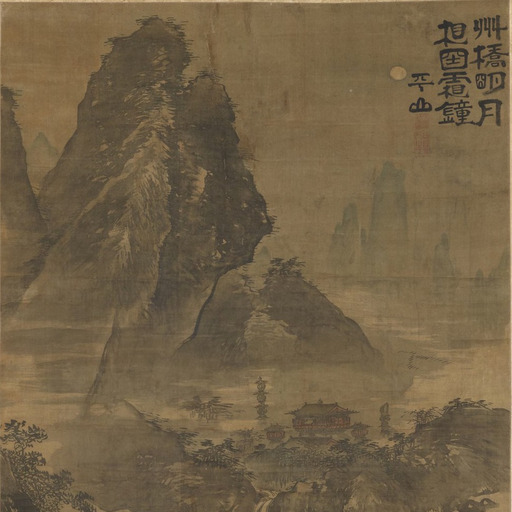 州橋明月
相國霜鐘
平山